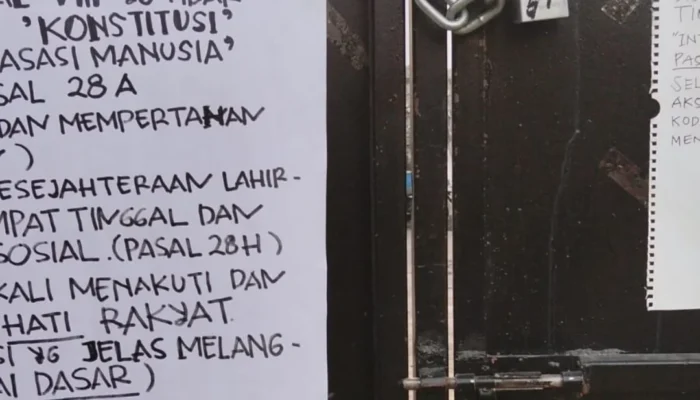 'KONSTITUSI'
ASASI MANUSIA'
SAL 28 A
DAN MEMPERTAHAN
)
ESEJAHTERAAN LAHIR-
MPAT TINGGAL DAN
SOSIAL. (PASAL 28H)
KALI MENAKUTI DAN
HATI RAKYAT.
SI YG JELAS MELANG-
AI DASAR)
TIM
"INT
PAS
SEL
AKS
KOD
MEN